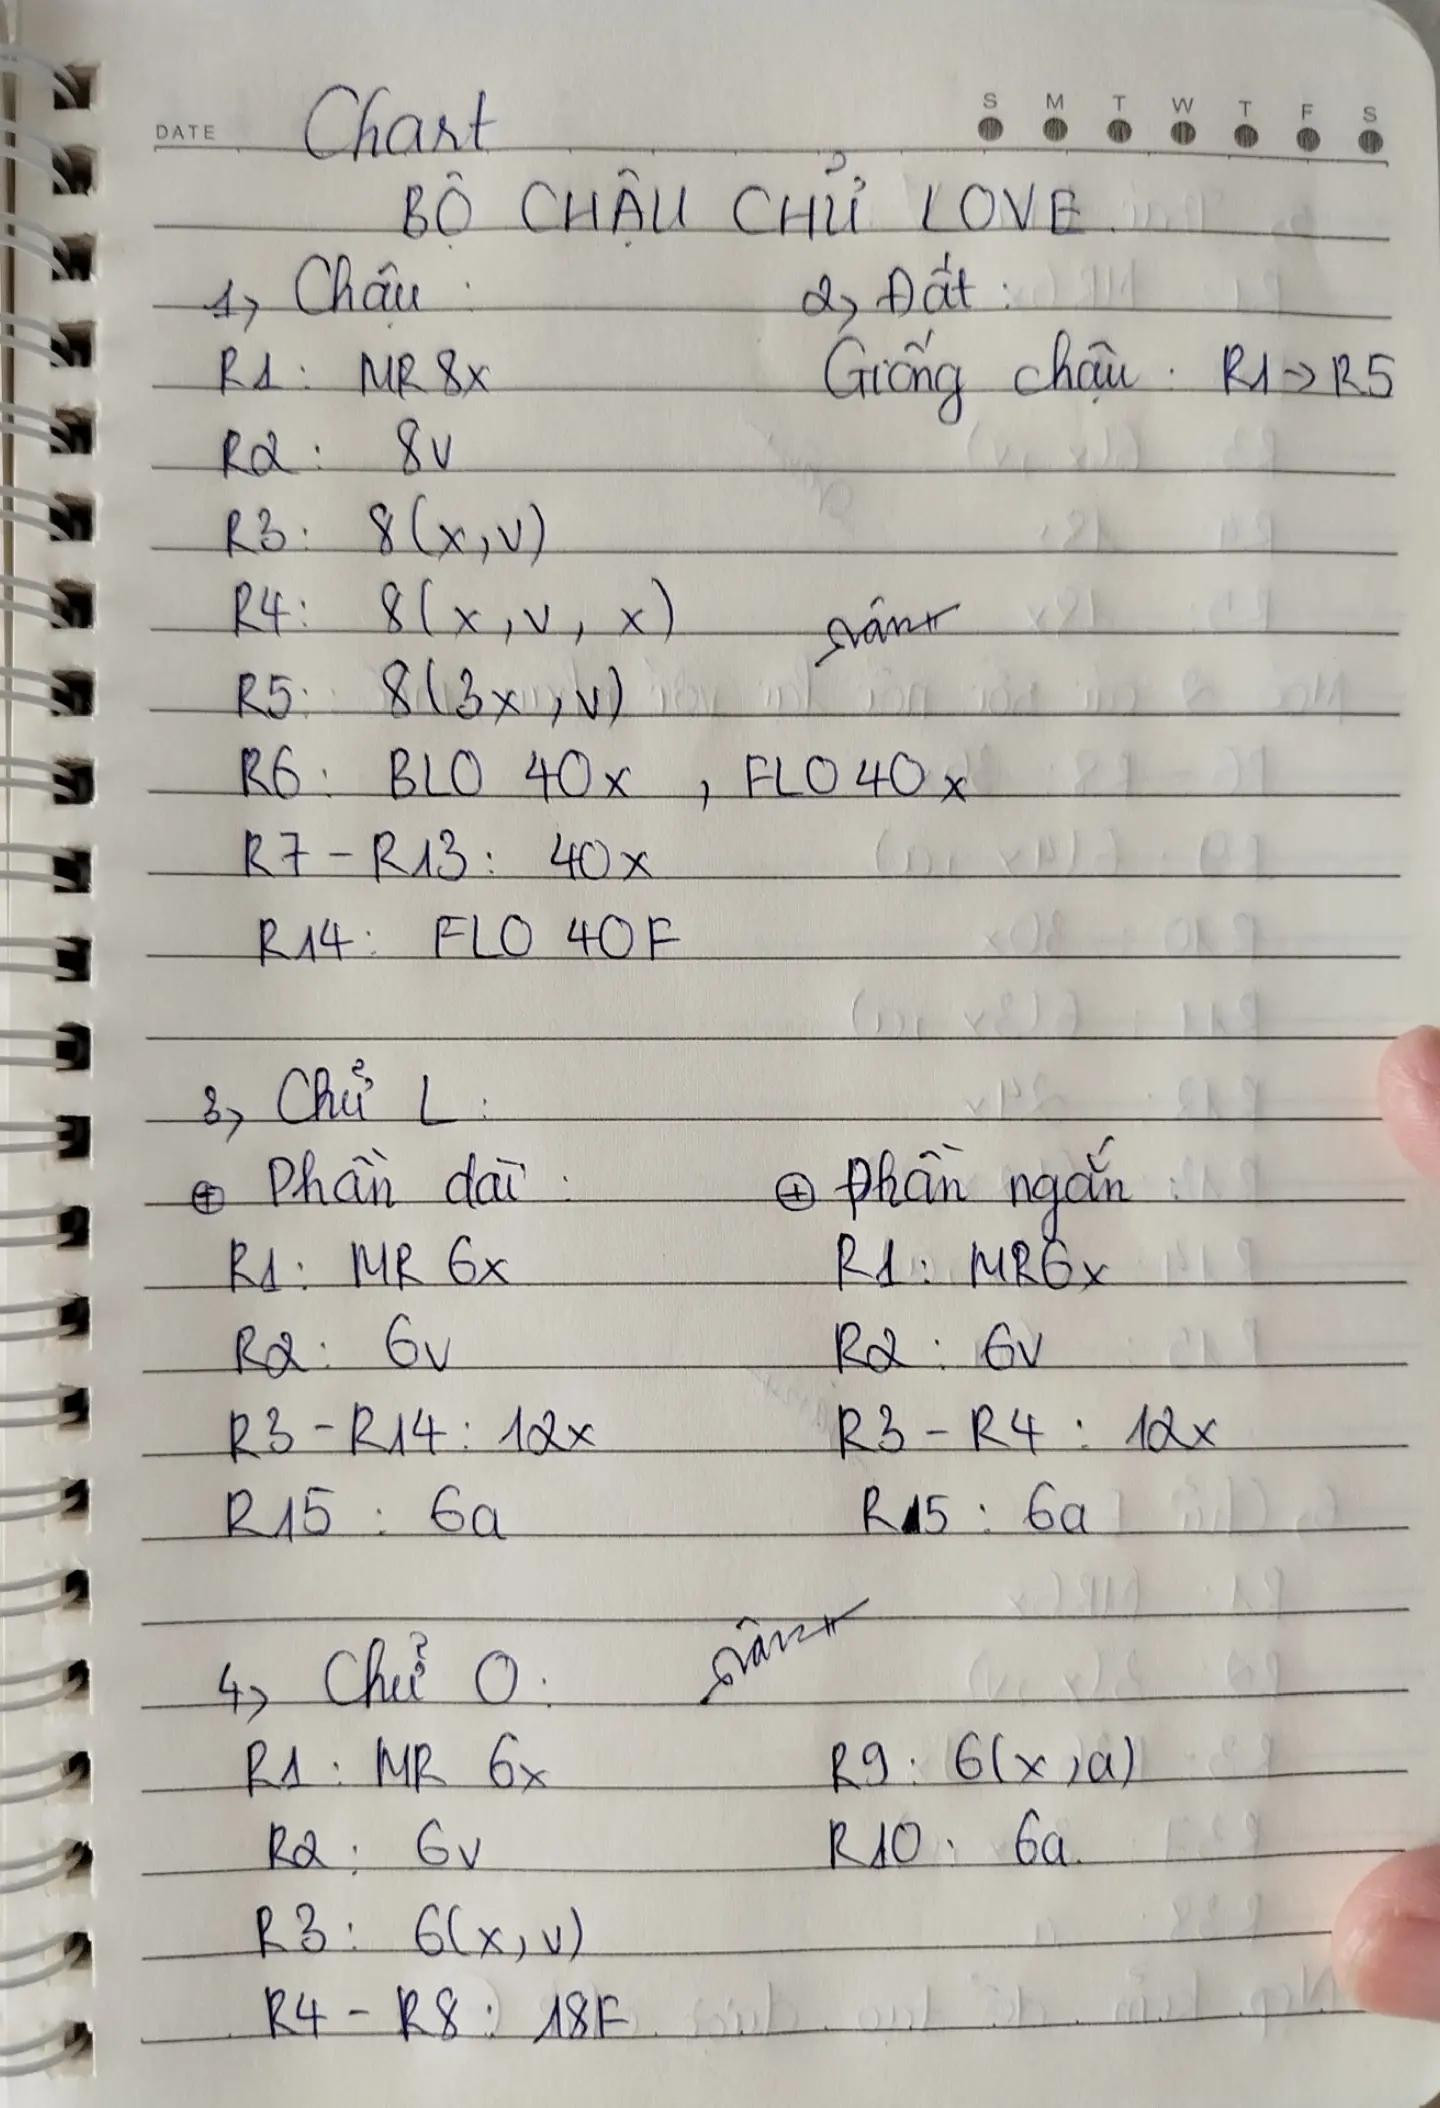 DATE
Chart
S M T W T F S
BỘ CHẬU CHỬ LOVE
1, Chậu :
R1: MR 8x
R2: 8v
R3: 8(x,v)
R4: 8(x,v,x)
R5: 8(3x,v)
R6: BLO 40x, FLO 40x
R7-R13: 40x
R14: FLO 40F
2, Đất :
Giống chậu : R1→R5
3, Chử L :
⊕ Phần dài :
R1: MR 6x
R2: 6v
R3-R14: 12x
R15: 6a
⊕ Phần ngắn :
R1: MR6x
R2: 6v
R3-R4: 12x
R15: 6a
4, Chử O :
R1: MR 6x
R2: 6v
R3: 6(x,v)
R4-R8: 18F
R9: 6(x,a)
R10: 6a.